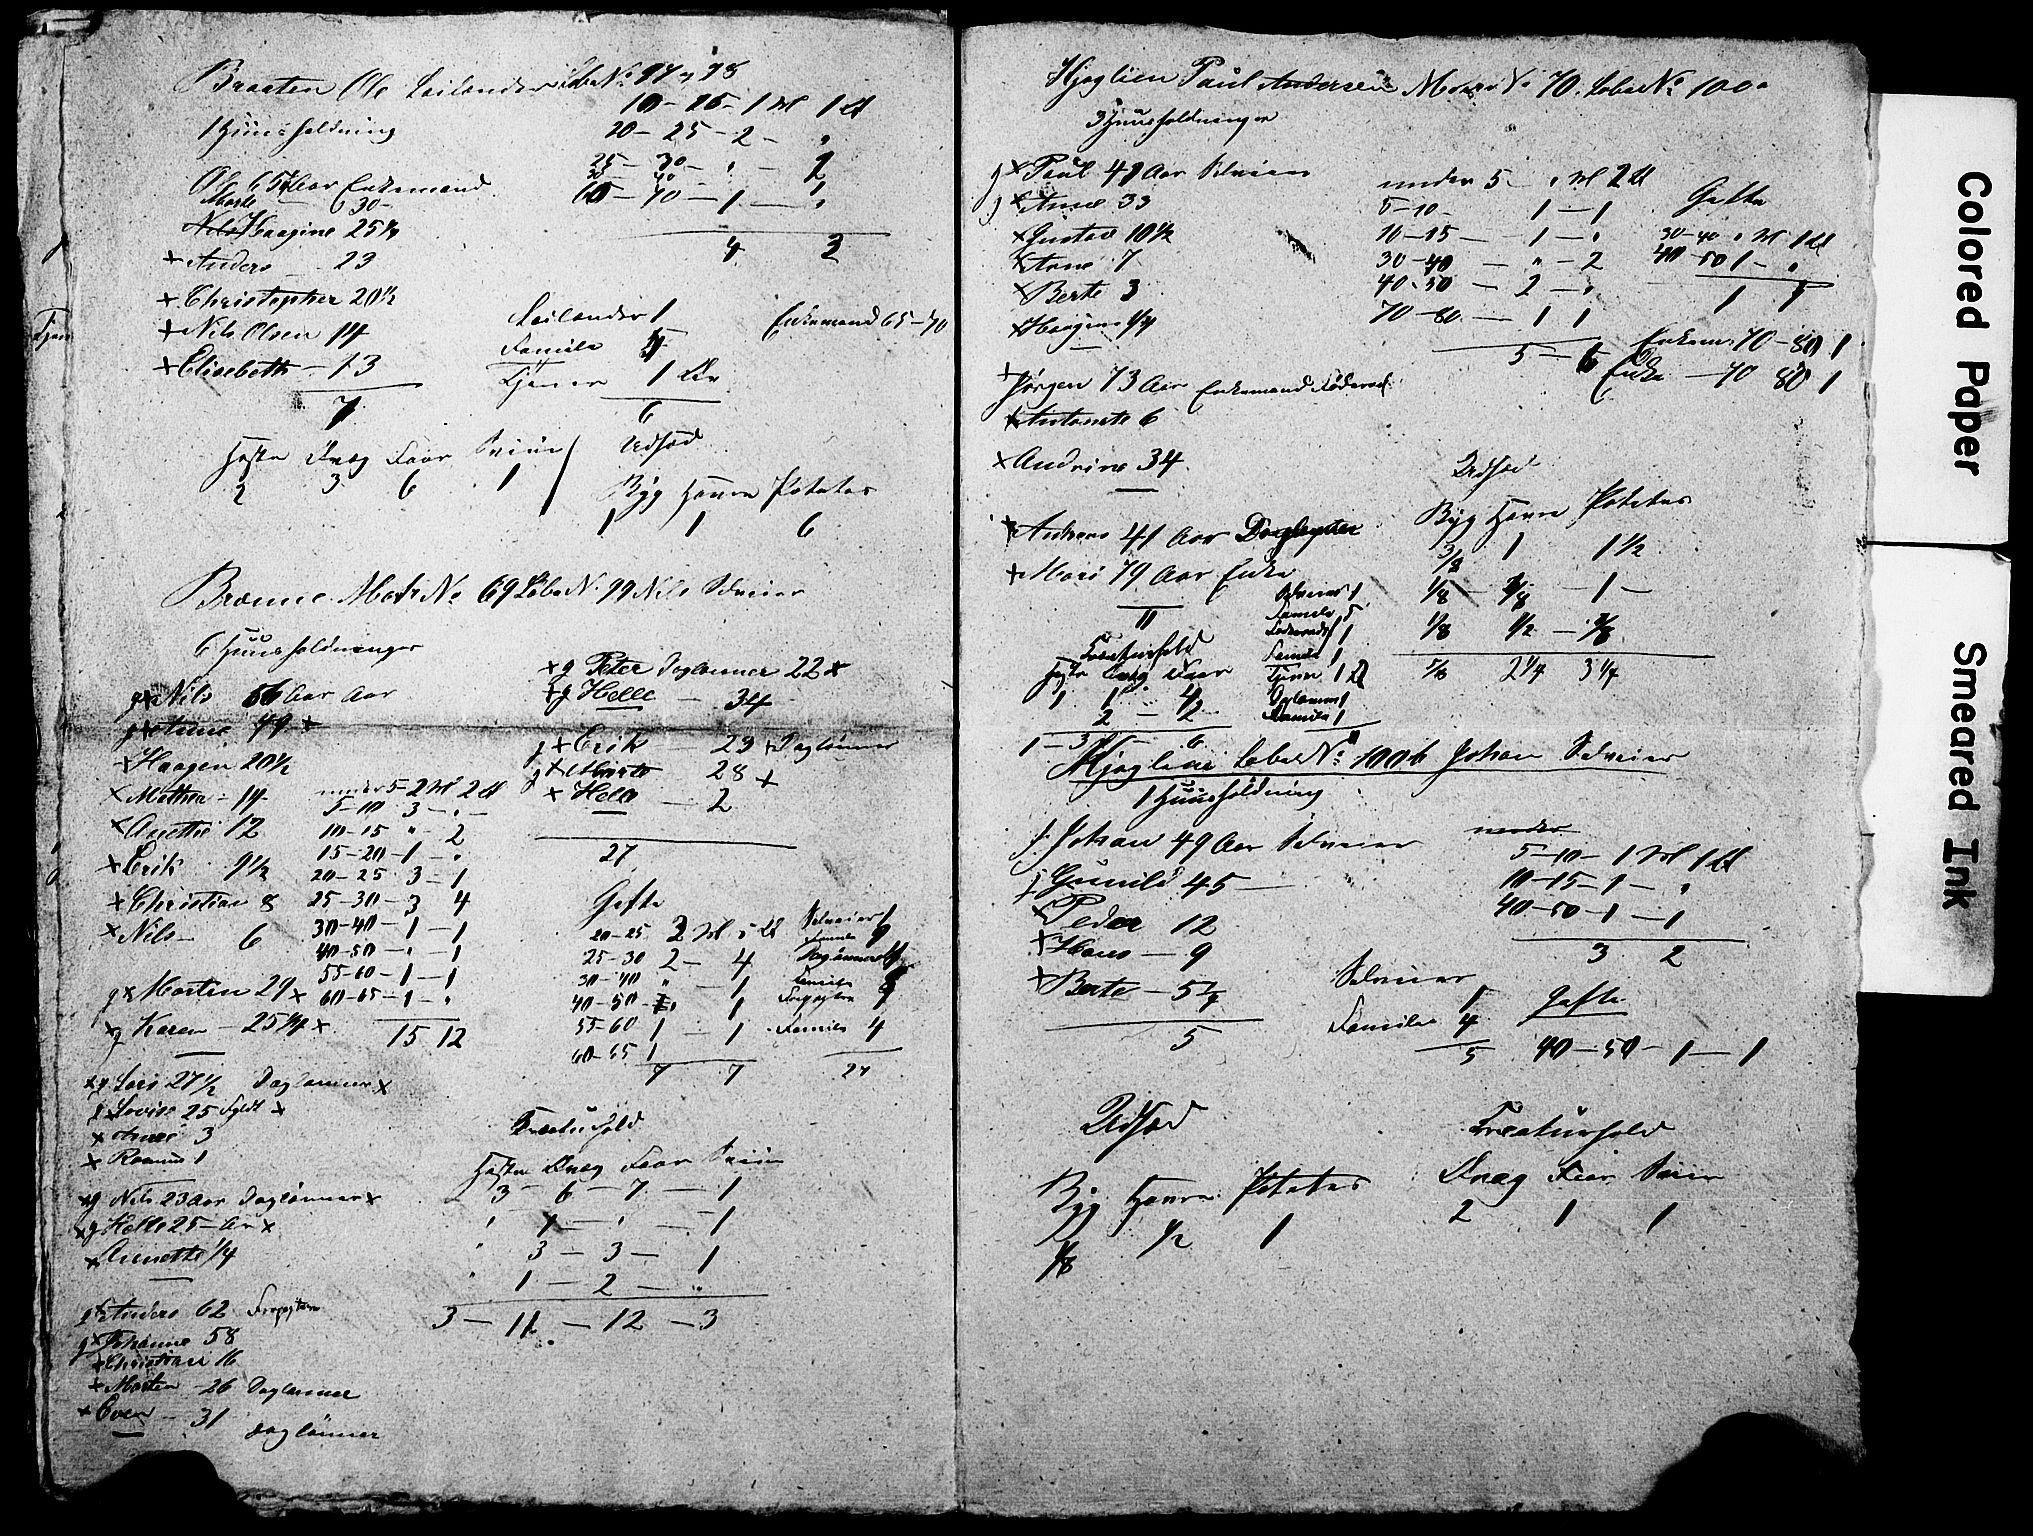 Braaten Ole Leilænder Løbe No 97 & 98
1 Huusholdning
10 - 15 - 1 M 1 Q
20 - 25 - 2 - "
25 - 30 - " - 2
60 - 70 - 1 - "
4 3
Ole 65 Aar Enkemand
Marte 30 -
Haagine 25 1/4
x Anders 23
x Christopher 20 1/2
x Nils Olsen 14
x Elisabeth - 13
7
Leilænder 1
Familie
Tjener 1
6
Enkemand 65 - 70
Heste Qvæg Faar Sviin
2 3 6 1
Udsæd
Byg Havre Potetes
1 1 6
Brænne Matr No 69 Løbe N. 99 Nils Selveier
6 Huusholdninger
gx Nils 56 Aar
gx Anne 49 x
x Haagen 20 1/2
x Mathea - 14
x Anette 12
x Erik 9 1/2
x Christian 8
x Nils 6
gx Morten 29 x
xg Karen - 25 1/4 x
under 5 - 2 M 2 Q
5 - 10 3 - " -
10 - 15 " - 2
15 - 20 - 1 - "
20 - 25 3 - 1
25 - 30 - 3 4
30 - 40 - 1 - 1
40 - 50 - " - 1
55 - 60 - 1 - 1
60 - 65 - 1 - "
15 12
xg Lars 27 1/2 Daglønner x
Lovise 25 x
x Anne 3
x Rasmus 1
xg Nils 23 Aar Daglønner x
xg Helle 25 - Aar x
x Annette 1/4
gx Anders 62
gx Johanne 58
x Christian 16
x Morten - 26 Daglønner
x Even - 31 Daglønner
xg Peter Daglønner 22 x
xg Helle - 34
gx Erik - 29 x Daglønner
gx Marte 28 x
x Helle - 2
27
Gifte
20 - 25 2 M " Q
25 - 30 2 - 4
30 - 40 " - 1
40 - 50 - " 1
55 - 60 1 - 1
60 - 65 1
7 7
Selveier 1
Familie 9
Daglønnere
Familie
1
Familie 4
27
Creaturhold
Heste Qvæg Faar Sviin
3 - 6 - 7 - 1
" 1 - " - 1
" 3 - 3 - 1
" 1 - 2 - "
3 - 11 - 12 - 3
Hjøglien Paul Andersen Matr No 70. Løbe No 100 a
3 Huusholdninger
gx Paul 41 Aar Selveier
gx Anne 33
x Gustav 10 1/2
x Arne 7
x Berte 3
x Haagen 1/4
x Jørgen 73 Aar Enkemand Føderaad
x Antonete 6
x Andrine 34
x Anders 41 Aar
x Mari 79 Aar Enke
11
under 5 - " M 2 Q
5 - 10 - 1 - 1
10 - 15 - 1 - "
30 - 40 - " - 2
40 - 50 - 2 - "
70 - 80 - 1 1
5 - 6
Gifte
30 - 40 " M 1 Q
40 - 50 1 - "
1 1
Enkem. 70 - 80 1
Enke - 70 80 1
Udsæd
Byg Havre Potetes
3/8 1 1 1/2
1/8 - - 1 -
1/8 1/2 -
5/8 2 1/4 3 1/4
Selveier 1
Familie 5
Føderaad 1
Familie 1
Tjener 1 Q
Daglønner 1
Familie 1
11
Creaturhold
Heste Qvæg Faar
1 1 4
2 - 2
1 - 3 - 6
Hjøglien Løbe No 100 b Johan Selveier
1 Huusholdning
g. Johan 49 Aar Selveier
g Gunild 45 -
x Peder 12
x Hans - 9
x Berte - 5
5
under
5 - 10 - 1 M 1 Q
10 - 15 - 1 - "
40 - 50 - 1 - 1
3 2
Selveier 1
Familie 4
5
Gifte
40 - 50 - 1 - 1
Udsæd
Byg Havre Potetes
1/8 1/2 1
Creaturhold
Qvæg Faar Sviin
2 1 1
Colored Paper
Smeared Ink